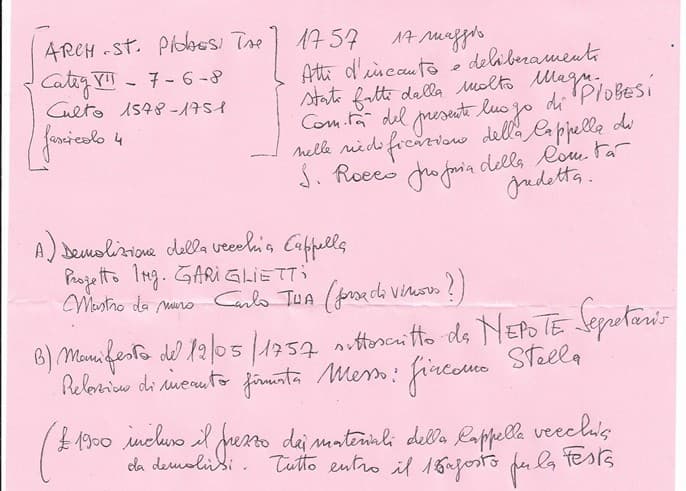 ARCH. ST. PIOBESI Tse
Categ VII - 7 - 6 - 8
Culto 1578 - 1751
fascicolo 4
1757 17 maggio
Atti d'incanto e deliberamenti
stati fatti dalla molto Magn.
Com.tà del presente luogo di PIOBESI
nelle riedificazione della Cappella di
S. Rocco propria della Com.tà
predetta.
A) Demolizione della vecchia Cappella
Progetto Ing. GARIGLIETTI
Mastro da muro Carlo TUA (forse di vinovo?)
B) Manifesto del 12/05/1757 sottoscritto da NEPOTE Segretario
Relazione di incanto firmata Messo: Giacomo Stella
(£ 1900 incluso il prezzo dei materiali della Cappella vecchia
da demolirsi. Tutto entro il 16 agosto per la Festa